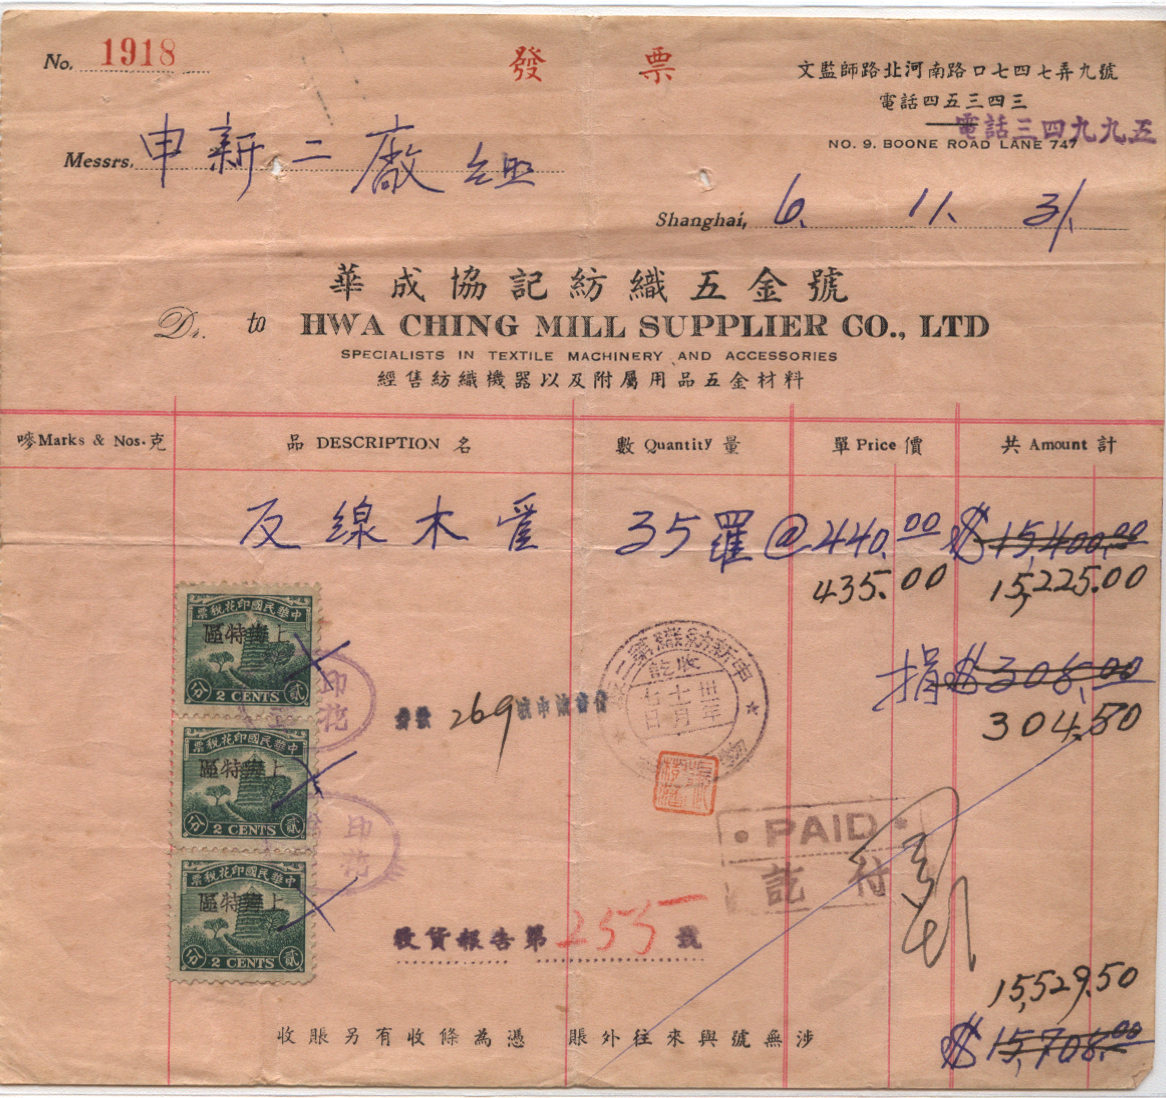 No. 1918
發票
文監師路北河南路口七四七弄九號
電話四五三四三
電話三四九九五
NO. 9. BOONE ROAD LANE 747
Messrs. 申新二廠
Shanghai, 6. 11. 31.
華成協記紡織五金號
Dr. to HWA CHING MILL SUPPLIER CO., LTD
SPECIALISTS IN TEXTILE MACHINERY AND ACCESSORIES
經售紡織機器以及附屬用品五金材料
嘜 Marks & Nos. 克 品 DESCRIPTION 名 數 Quantity 量 單 Price 價 共 Amount 計
反線木管 35羅 @440.00 $15,400.00
435.00 15,225.00
捐 $308.00
304.50
中華民國印花稅票
上海特區
分 2 CENTS 貳
中華民國印花稅票
上海特區
分 2 CENTS 貳
中華民國印花稅票
上海特區
分 2 CENTS 貳
印花
印花
269
申新紡織第二廠
收訖
卅一年十一月七日
PAID
付訖
收貨報告第255號
15,529.50
$15,708.00
收賬另有收條為憑 賬外往來與號無涉